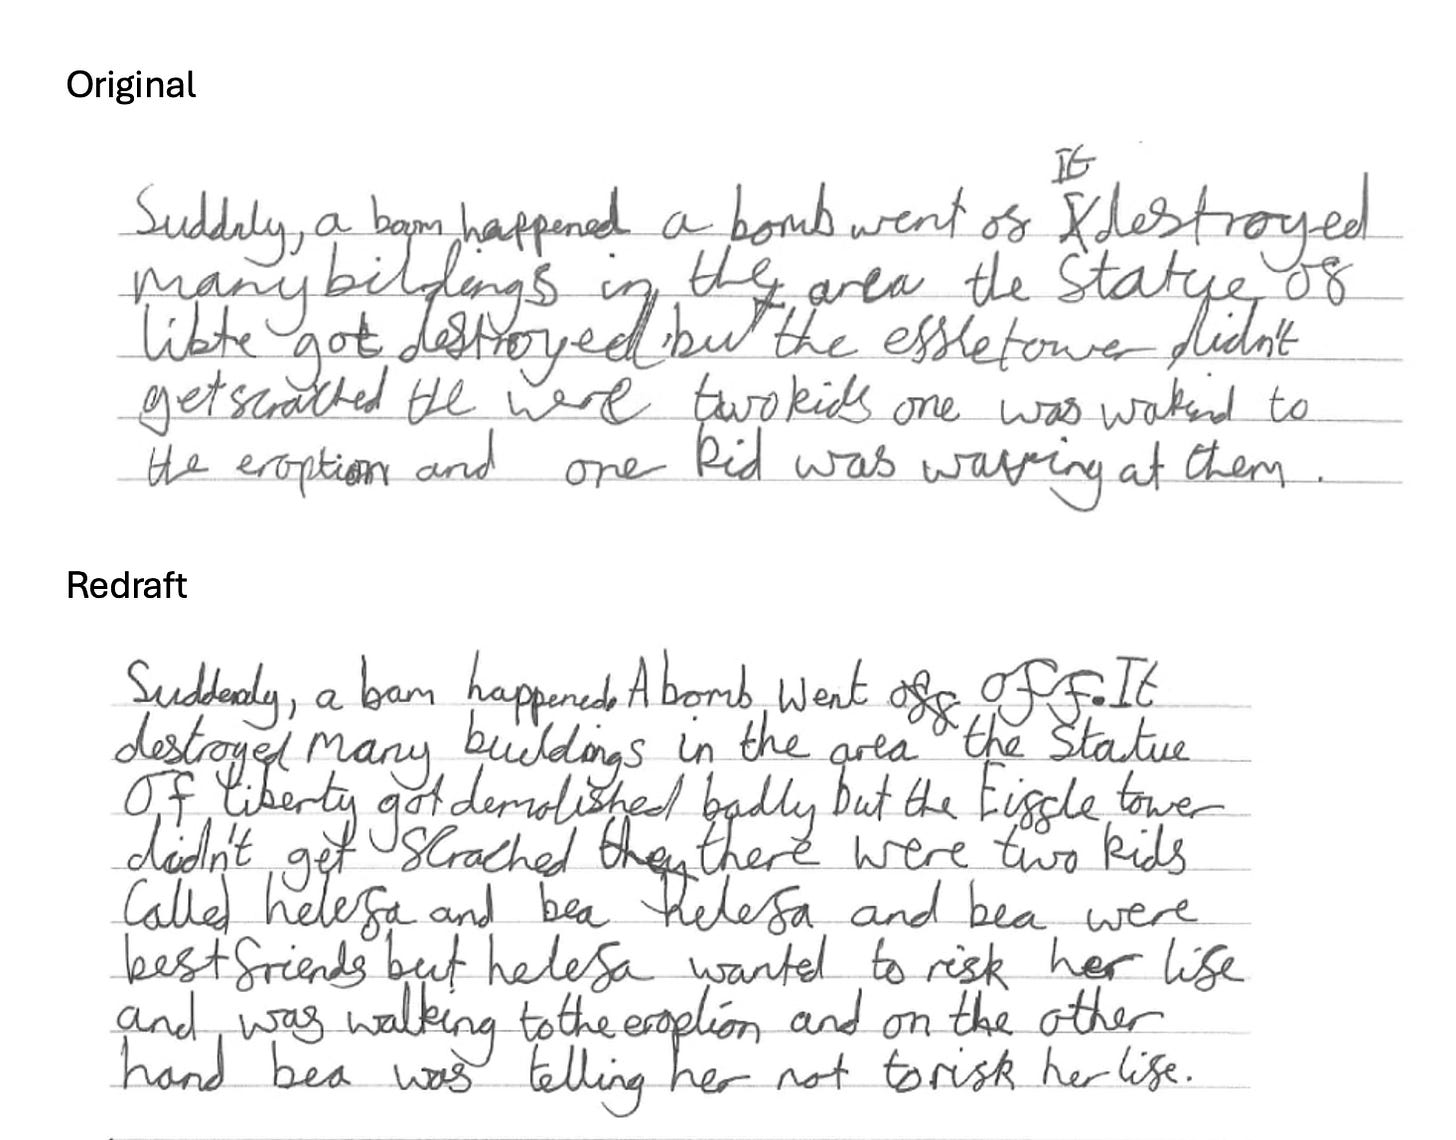 Original
It
Suddnly, a bam happened a bomb went of destroyed
many bildings in the area the Statue of
libte got destroyed but the effletower didn't
get scrached the were two kids one was wakind to
the eroption and one kid was wavring at them.
Redraft
Suddenly, a bam happened. A bomb went off off. It
destroyed many buildings in the area the Statue
of liberty got demolished badly but the Eiffle tower
didn't get scrached they there were two kids
called helefa and bea helefa and bea were
best friends but helefa wanted to risk her life
and was walking to the eroption and on the other
hand bea was telling her not to risk her life.